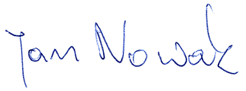 Jan Nowak